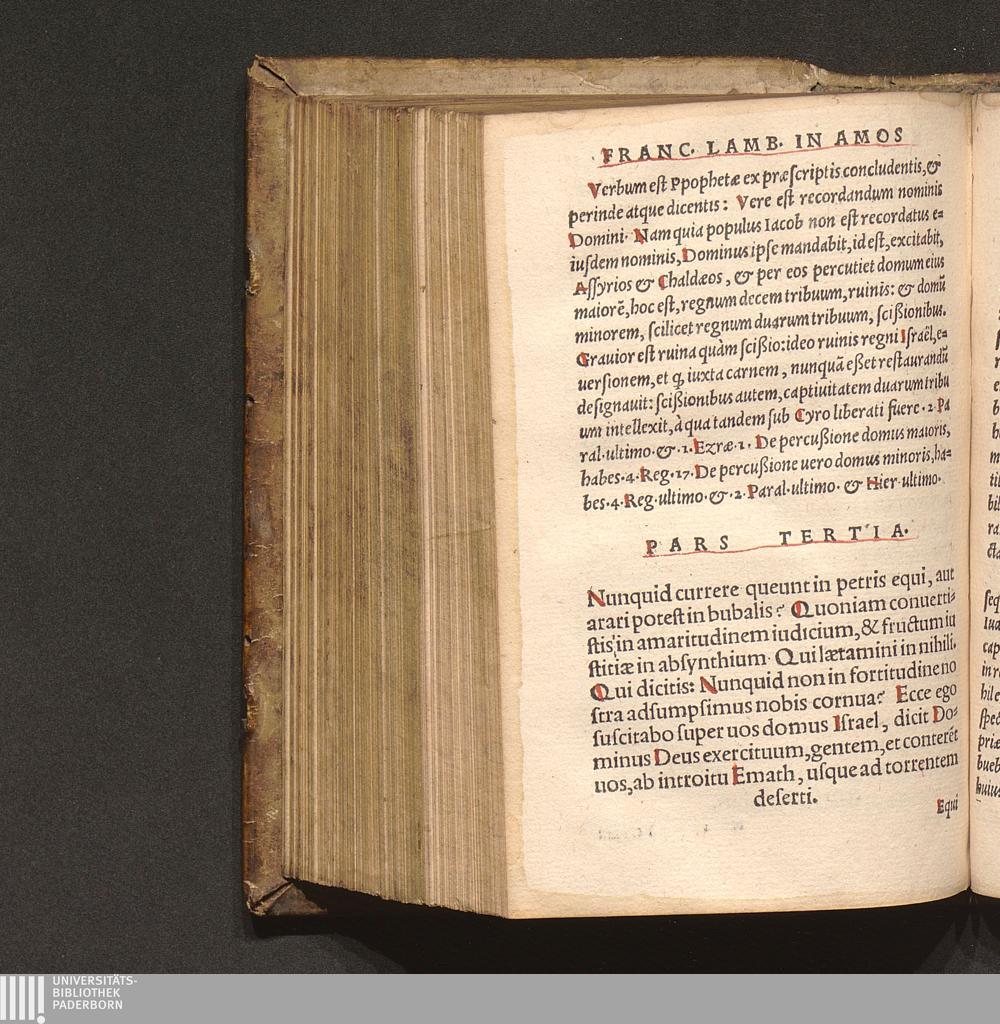 FRANC. LAMB. IN AMOS
Verbum est Ppophetæ ex præscriptis concludentis, &
perinde atque dicentis: Vere est recordandum nominis
Domini. Nam quia populus Iacob non est recordatus e=
iusdem nominis, Dominus ipse mandabit, id est, excitabit,
Assyrios & Chaldæos, & per eos percutiet domum eius
maiorẽ, hoc est, regnum decem tribuum, ruinis: & domũ
minorem, scilicet regnum duarum tribuum, scißionibus.
Grauior est ruina quàm scißio: ideo ruinis regni Israël, e=
uersionem, et ꝙ iuxta carnem, nunquã eßet restaurandũ
designauit: scißionibus autem, captiuitatem duarum tribu
um intellexit, à qua tandem sub Cyro liberati fuere. 2. Pa
ral. ultimo. & .1. Ezræ. 1. De percußione domus maioris,
habes .4. Reg. 17. De percußione uero domus minoris, ha=
bes .4. Reg. ultimo. & .2. Paral. ultimo. & Hier. ultimo.
PARS TERTIA.
Nunquid currere queunt in petris equi, aut
arari potest in bubalis? Quoniam conuerti=
stis in amaritudinem iudicium, & fructum iu
stitiæ in absynthium. Qui lætamini in nihili.
Qui dicitis: Nunquid non in fortitudine no
stra adsumpsimus nobis cornua? Ecce ego
suscitabo super uos domus Israel, dicit Do=
minus Deus exercituum, gentem, et conterẽt
uos, ab introitu Emath, usque ad torrentem
deserti.
Equi
UNIVERSITÄTS-
BIBLIOTHEK
PADERBORN